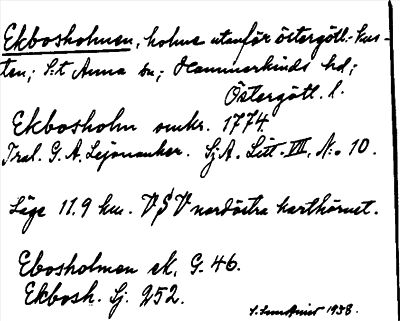 Ekbosholmen, holme utanför östergötl.-kus-
ten; S:t Anna sn; Hammarkinds hd;
Östergötl. l.
Ekbosholm omkr. 1774.
Tral. G. A. Lejonanker. SjA. Litt. VIII, No 10.
Läge 11.9 km. VSV nordöstra karthörnet.
Ebosholmen ek. G. 46.
Ekbosh. Sj. 252.
1938.